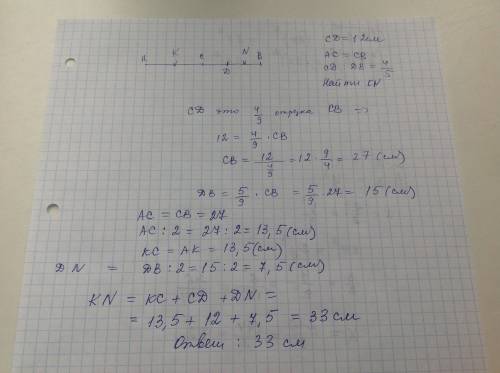 A K C D N B
CD = 12 см
AC = CB
CD : DB = 4/5
Найти KN
CD это 4/9 отрезка CB =>
12 = 4/9 · CB
CB = 12/(4/9) = 12 · 9/4 = 27 (см)
DB = 5/9 · CB = 5/9 · 27 = 15 (см)
AC = CB = 27
AC : 2 = 27 : 2 = 13,5 (см)
KC = AK = 13,5 (см)
DN = DB : 2 = 15 : 2 = 7,5 (см)
KN = KC + CD + DN =
= 13,5 + 12 + 7,5 = 33 см
Ответ : 33 см